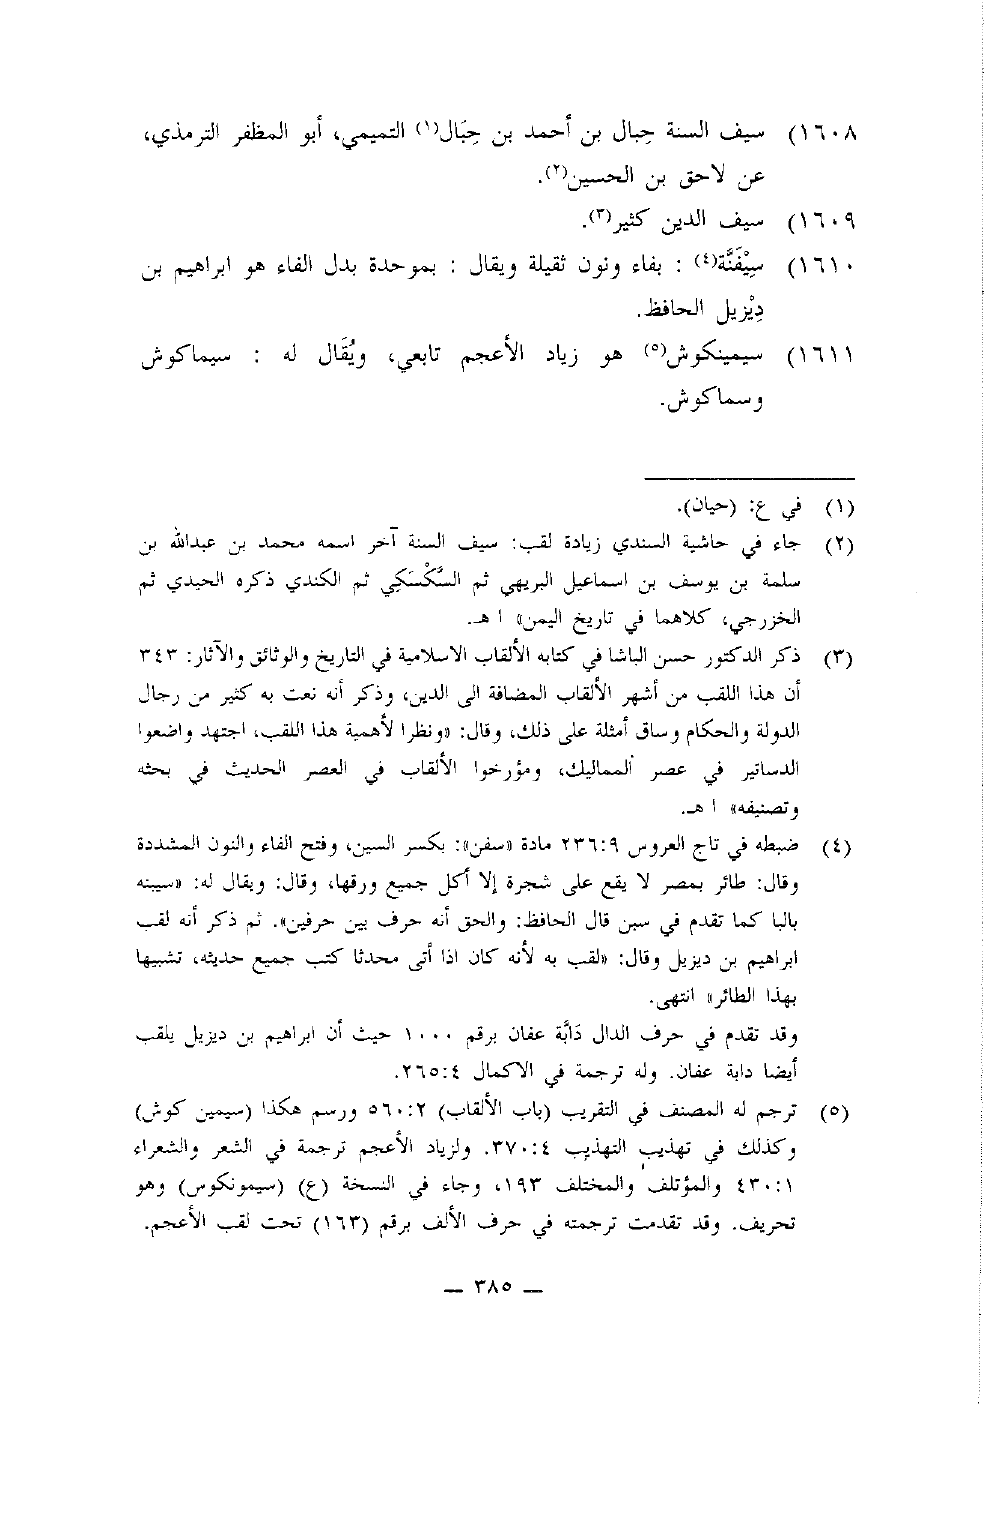 ١٦٠٨) سيف السنة حِبال بن أحمد بن حِبَال(١) التميمي، أبو المظفر الترمذي،
عن لاحق بن الحسين(٢).
١٦٠٩) سيف الدين كثير(٣).
١٦١٠) سِيْفَنَّة(٤) : بفاء ونون ثقيلة ويقال : بموحدة بدل الفاء هو ابراهيم بن
دِيْزيل الحافظ.
١٦١١) سيمينكوش(٥) هو زياد الأعجم تابعي، ويُقَال له : سيماكوش
وسماكوش.
(١) في ع: (حيان).
(٢) جاء في حاشية السندي زيادة لقب: سيف السنة آخر اسمه محمد بن عبدالله بن
سلمة بن يوسف بن اسماعيل البريهي ثم السَّكْسَكِي ثم الكندي ذكره الجيدي ثم
الخزرجي، كلاهما في تاريخ اليمن» ا هـ.
(٣) ذكر الدكتور حسن الباشا في كتابه الألقاب الاسلامية في التاريخ والوثائق والآثار: ٣٤٣
أن هذا اللقب من أشهر الألقاب المضافة الى الدين، وذكر أنه نعت به كثير من رجال
الدولة والحكام وساق أمثلة على ذلك، وقال: «ونظرا لأهمية هذا اللقب، اجتهد واضعوا
الدساتير في عصر المماليك، ومؤرخوا الألقاب في العصر الحديث في بحثه
وتصنيفه» ا هـ.
(٤) ضبطه في تاج العروس ٢٣٦:٩ مادة «سفن»: بكسر السين، وفتح الفاء والنون المشددة
وقال: طائر بمصر لا يقع على شجرة إلا أكل جميع ورقها، وقال: ويقال له: «سيبنه
بالبا كما تقدم في سبن قال الحافظ: والحق أنه حرف بين حرفين». ثم ذكر أنه لقب
ابراهيم بن ديزيل وقال: «لقب به لأنه كان اذا أتى محدثا كتب جميع حديثه، تشبيها
بهذا الطائر» انتهى.
وقد تقدم في حرف الدال دَابَّة عفان برقم ١٠٠٠ حيث أن ابراهيم بن ديزيل يلقب
أيضا دابة عفان. وله ترجمة في الاكمال ٢٦٥:٤.
(٥) ترجم له المصنف في التقريب (باب الألقاب) ٥٦٠:٢ ورسم هكذا (سيمين كوش)
وكذلك في تهذيب التهذيب ٣٧٠:٤. ولزياد الأعجم ترجمة في الشعر والشعراء
٤٣٠:١ والمؤتلف والمختلف ١٩٣، وجاء في النسخة (ع) (سيمونكوس) وهو
تحريف. وقد تقدمت ترجمته في حرف الألف برقم (١٦٣) تحت لقب الأعجم.
— ٣٨٥ —